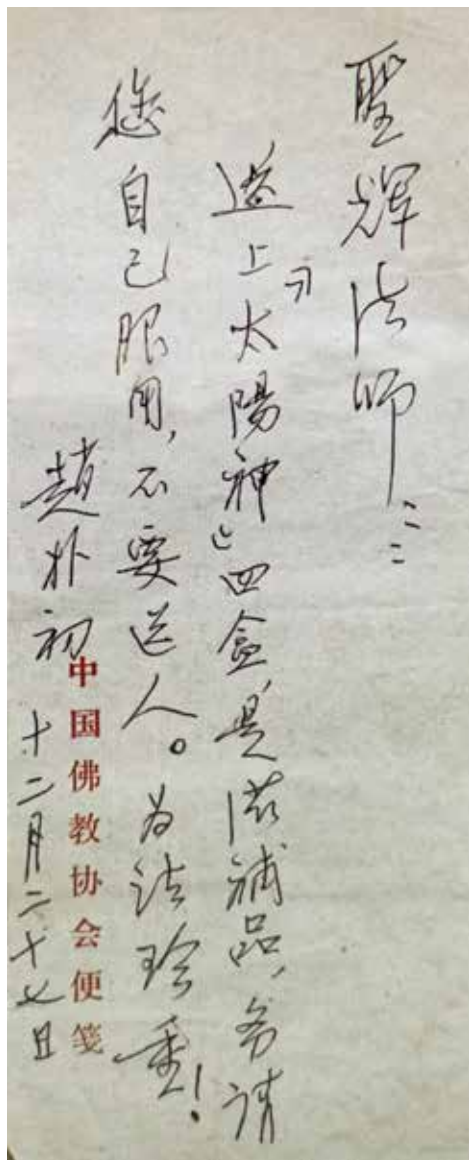 聖輝法师：
送上「太陽神」四盒，是滋補品，务请
您自己服用，不要送人。为法珍重！
趙朴初
十二月二十七日
中国佛教协会便笺